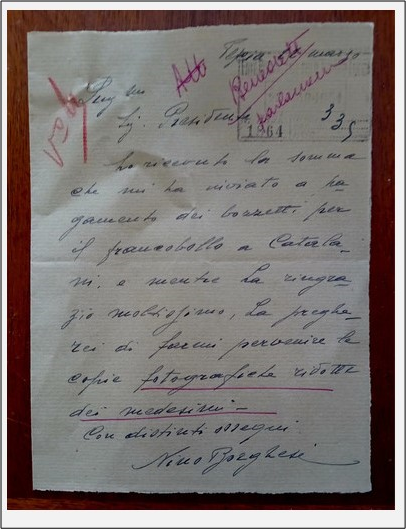 Atti
marzo
Benedetti
Preg.mo
Sig. Presidente
1864
335
ho ricevuto la somma
che mi ha inviato a pa
gamento dei bozzetti per
il francobollo a Catala
ni, e mentre La ringra
zio moltissimo, La preghe
rei di farmi pervenire le
copie fotografiche ridotte
dei medesimi -
Con distinti ossequi
Nino Borghesi